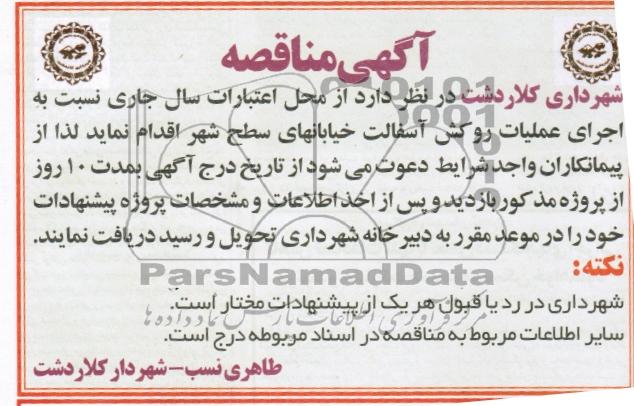 آگهی مناقصه
شهرداری کلاردشت در نظر دارد از محل اعتبارات سال جاری نسبت به
اجرای عملیات روکش آسفالت خیابانهای سطح شهر اقدام نماید لذا از
پیمانکاران واجد شرایط دعوت می شود از تاریخ درج آگهی بمدت ۱۰ روز
از پروژه مذکور بازدید و پس از اخذ اطلاعات و مشخصات پروژه پیشنهادات
خود را در موعد مقرر به دبیرخانه شهرداری تحویل و رسید دریافت نمایند.
نکته:
ParsNamadData
شهرداری در رد یا قبول هر یک از پیشنهادات مختار است.
مرکز فرآوری اطلاعات پارس نماد داده ها
سایر اطلاعات مربوط به مناقصه در اسناد مربوطه درج است.
طاهری نسب - شهردار کلاردشت